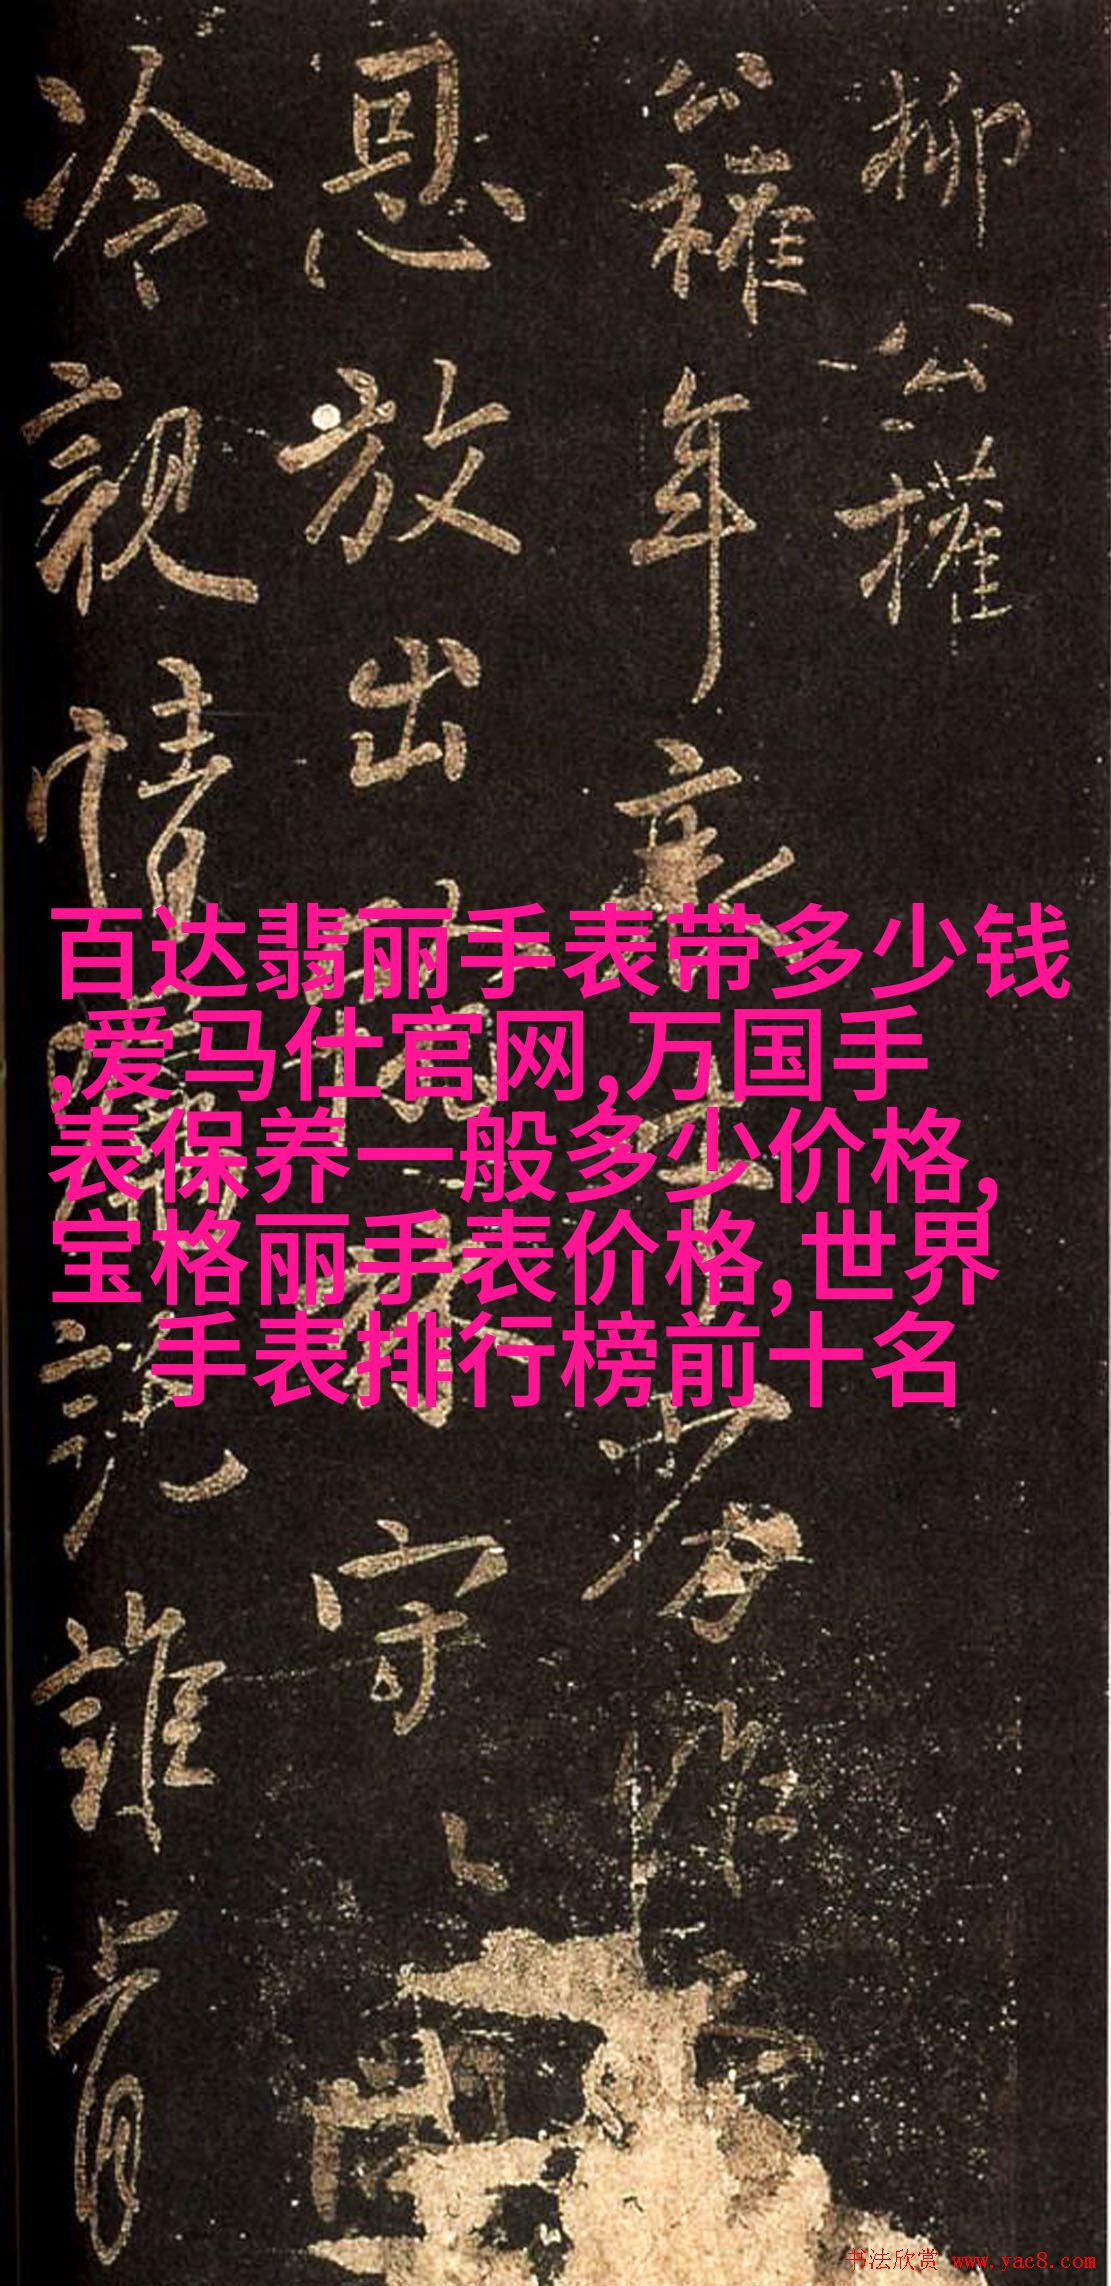 柳公權
公權年衰才劣昨
恩放出翰林守以
冷親情囑託誰肯
百达翡丽手表带多少钱
,爱马仕官网,万国手
表保养一般多少价格,
宝格丽手表价格,世界
手表排行榜前十名
书法欣赏 www.yac8.com